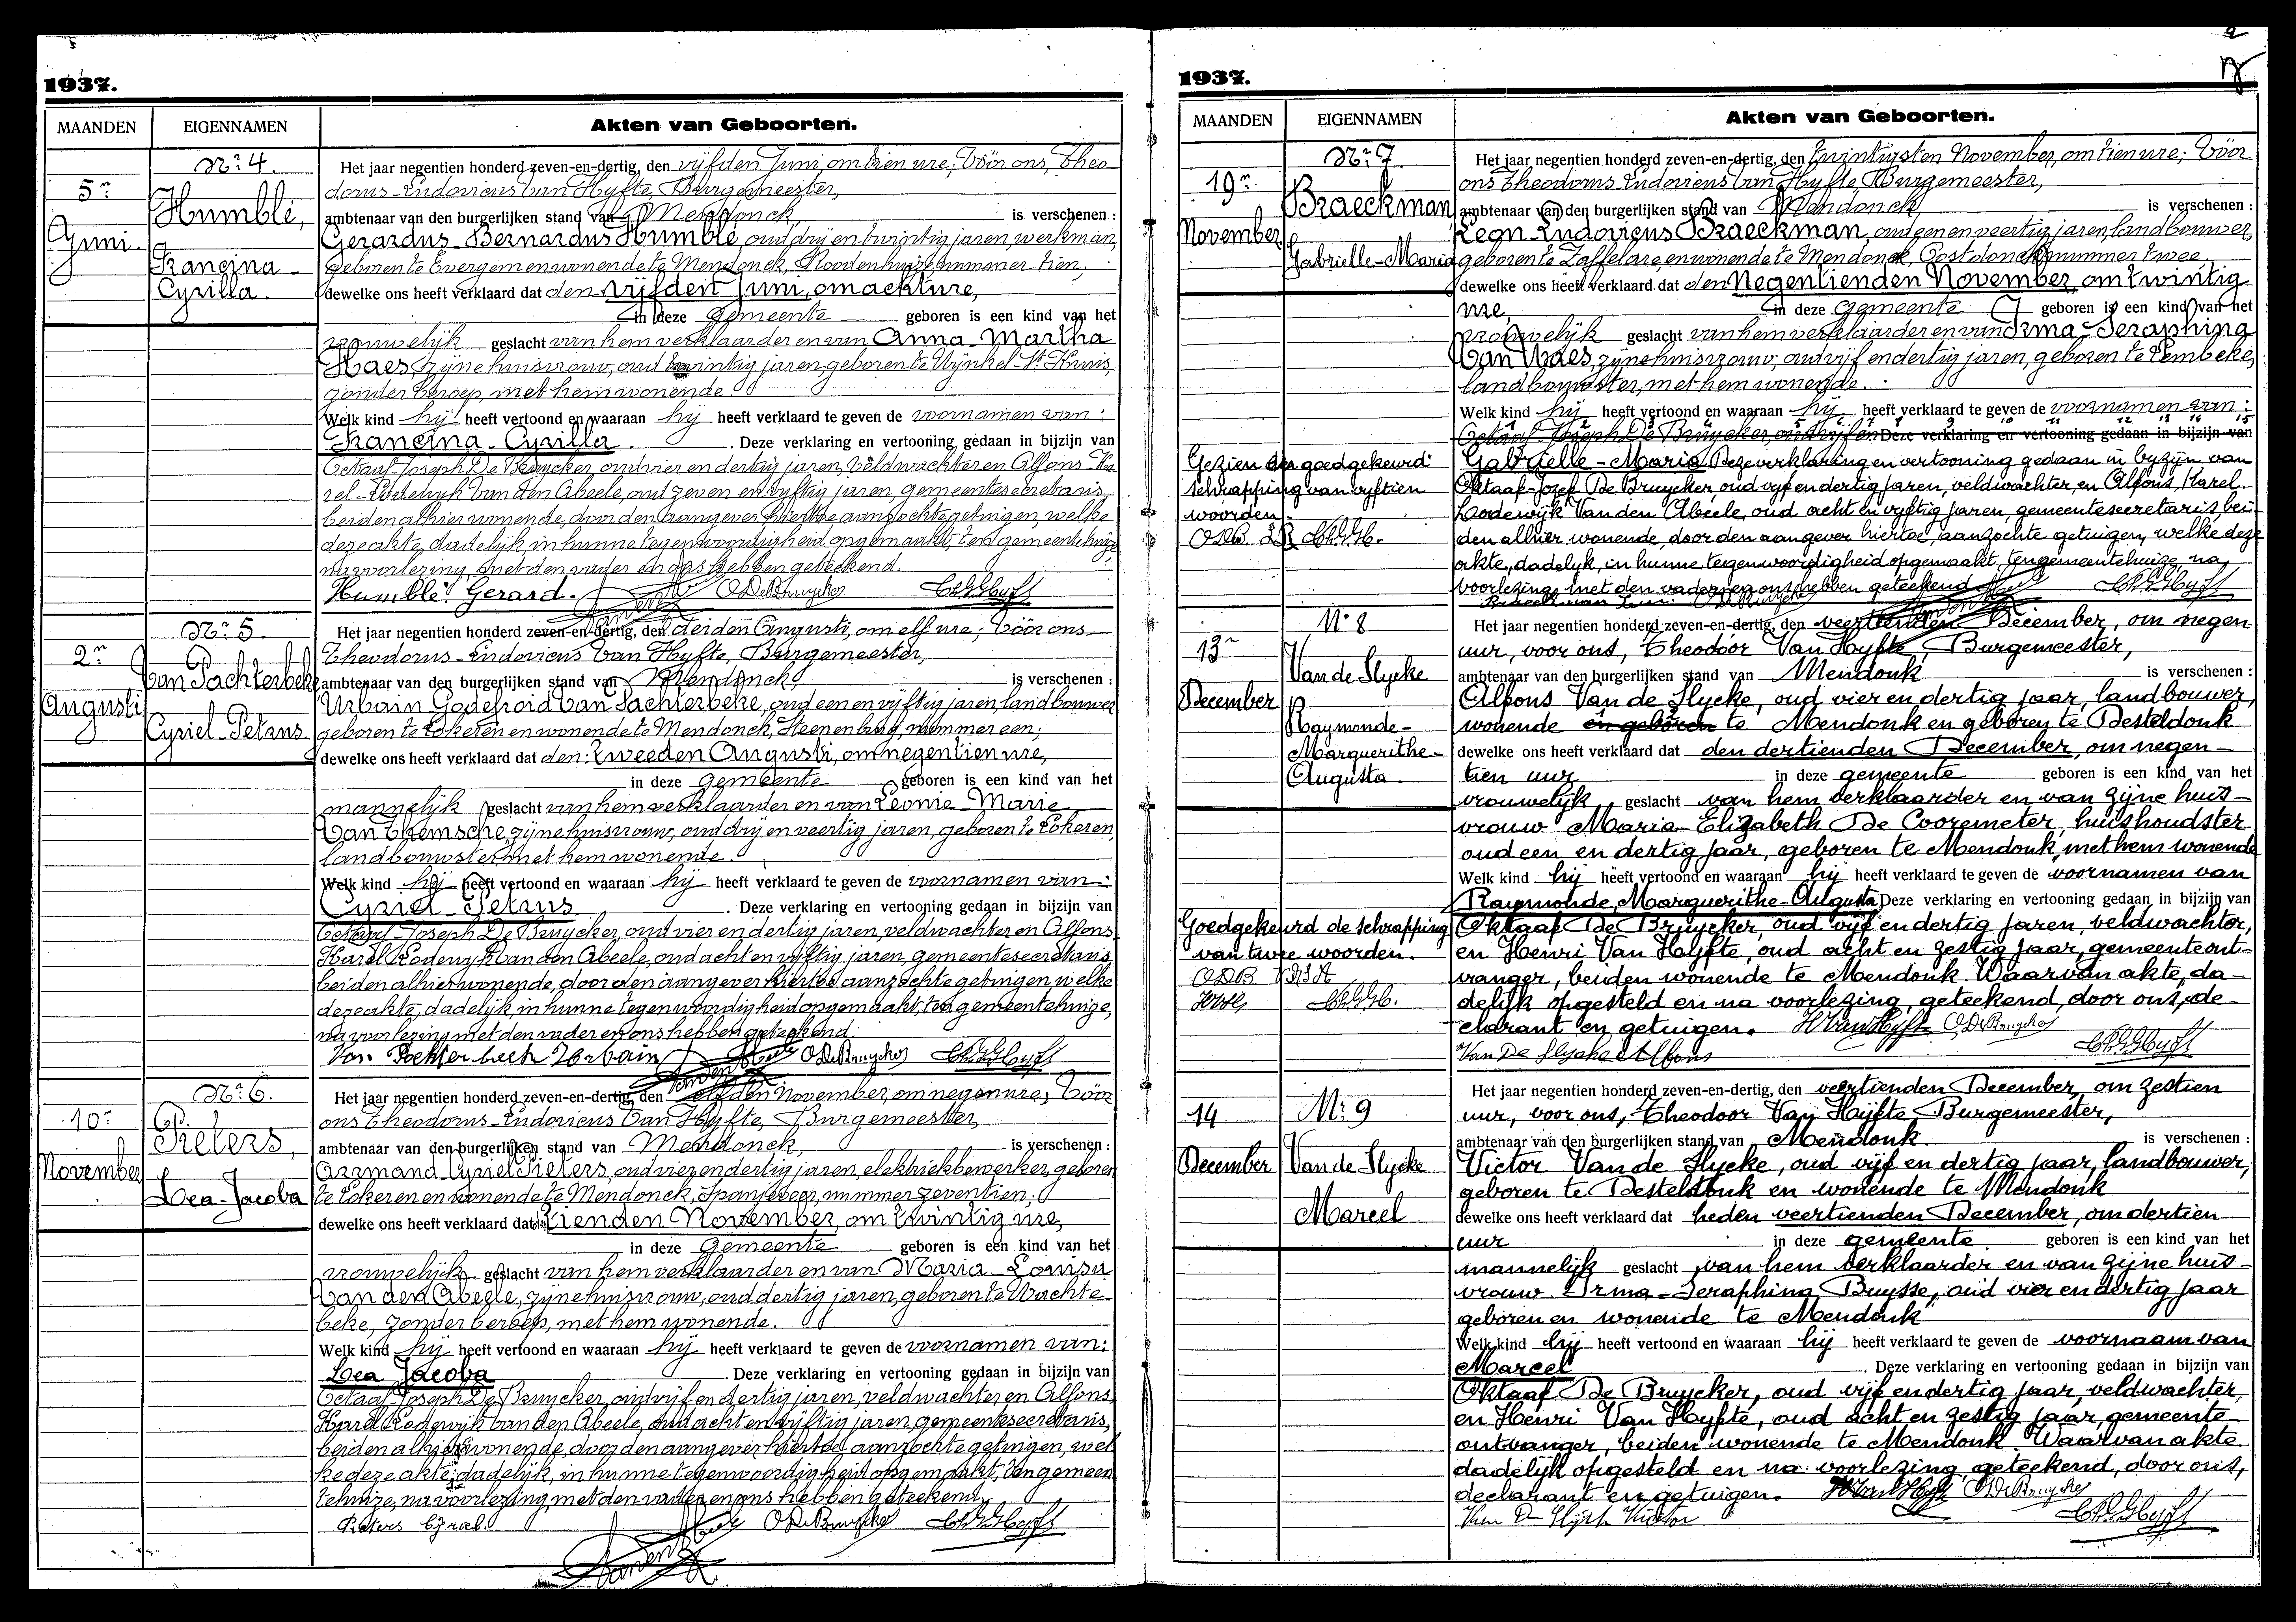 1937.
MAANDEN EIGENNAMEN Akten van Geboorten.
Nr. 4.
5n
Juni.
Humblé,
Francina-
Cyrilla.
Het jaar negentien honderd zeven-en-dertig, den vijfden Juni, om tien ure; Vóór ons, Theo
dorus-Ludovicus Van Hyfte, Burgemeester,
ambtenaar van den burgerlijken stand van Mendonck, is verschenen :
Gerardus-Bernardus Humblé, oud drij en twintig jaren, werkman,
geboren te Evergem en wonende te Mendonck, nummer tien;
dewelke ons heeft verklaard dat den vijfden Juni, om acht ure,
in deze gemeente geboren is een kind van het
vrouwelijk geslacht van hem verklaarder en van Anna-Martha
Haes, zijne huisvrouw, oud twintig jaren, geboren te Wynkel-St-Kruis,
zonder beroep, met hem wonende.
Welk kind hij heeft vertoond en waaraan hij heeft verklaard te geven de voornamen van:
Francina-Cyrilla. Deze verklaring en vertooning gedaan in bijzijn van
Octaaf-Joseph De Bruycker, oud vier en dertig jaren, veldwachter en Alfons-Ka-
rel-Lodewyk Van den Abeele, oud zeven en vyftig jaren, gemeentesecretaris,
beiden alhier wonende, door den aangever hiertoe aanzochte getuigen, welke
deze akte, dadelijk, in hunne tegenwoordigheid opgemaakt, ten gemeentehuize,
na voorlezing, met den vader en ons hebben geteekend.
Humblé Gerard. O De Bruycker
Nr. 5.
2n
Augusti
Van Pachterbeke
Cyriel-Petrus
Het jaar negentien honderd zeven-en-dertig, den derden Augusti, om elf ure; Vóór ons
Theodorus-Ludovicus Van Hyfte, Burgemeester,
ambtenaar van den burgerlijken stand van Mendonck, is verschenen :
Urbain Godefroid Van Pachterbeke, oud een en vyftig jaren, landbouwer
geboren te Lokeren en wonende te Mendonck, Steenenbrug, nummer een;
dewelke ons heeft verklaard dat den: tweeden Augusti, om negentien ure,
in deze gemeente geboren is een kind van het
mannelijk geslacht van hem verklaarder en van Leonie-Marie
Van Themsche, zijne huisvrouw, oud drij en veertig jaren, geboren te Lokeren,
landbouwster, met hem wonende.
Welk kind hij heeft vertoond en waaraan hij heeft verklaard te geven de voornamen van:
Cyriel-Petrus. Deze verklaring en vertooning gedaan in bijzijn van
Octaaf-Joseph De Bruycker, oud vier en dertig jaren, veldwachter en Alfons
Karel Lodewyk Van den Abeele, oud acht en vyftig jaren, gemeentesecretaris,
beiden alhier wonende, door den aangever hiertoe aanzochte getuigen, welke
deze akte, dadelijk, in hunne tegenwoordigheid opgemaakt, ten gemeentehuize,
na voorlezing met den vader en ons hebben geteekend.
O De Bruycker
Nr. 6.
10n
November
Pieters,
Lea-Jacoba
Het jaar negentien honderd zeven-en-dertig, den elfden November, om negen ure; Vóór
ons Theodorus-Ludovicus Van Hyfte, Burgemeester,
ambtenaar van den burgerlijken stand van Mendonck, is verschenen :
Armand Cyriel Pieters, oud vier en dertig jaren, elektriekbewerker, geboren
te Lokeren en wonende te Mendonck, Spanjeveer, nummer zeventien;
dewelke ons heeft verklaard dat den tienden November, om twintig ure,
in deze gemeente geboren is een kind van het
vrouwelijk geslacht van hem verklaarder en van Maria-Louisa
Van den Abeele, zijne huisvrouw, oud dertig jaren, geboren te Wachte-
beke, zonder beroep, met hem wonende.
Welk kind hij heeft vertoond en waaraan hij heeft verklaard te geven de voornamen van:
Lea Jacoba. Deze verklaring en vertooning gedaan in bijzijn van
Octaaf Joseph De Bruycker, oud vijf en dertig jaren, veldwachter en Alfons
Karel Lodewijk Van den Abeele, oud acht en vyftig jaren, gemeentesecretaris,
beiden alhier wonende, door den aangever hiertoe aanzochte getuigen, wel
ke deze akte, dadelijk, in hunne tegenwoordigheid opgemaakt, ten gemeen
tehuize, na voorlezing, met den vader en ons hebben geteekend.
Pieters Cyriel. O De Bruycker
1937.
MAANDEN EIGENNAMEN Akten van Geboorten.
Nr. 7.
19n
November
Braeckman
Gabrielle-Maria
Het jaar negentien honderd zeven-en-dertig, den twintigsten November, om tien ure; Vóór
ons Theodorus Ludovicus Van Hyfte, Burgemeester,
ambtenaar van den burgerlijken stand van Mendonck, is verschenen :
Leon Ludovicus Braeckman, oud een en veertig jaren, landbouwer,
geboren te Zaffelare, en wonende te Mendonck, Oostdonck, nummer twee,
dewelke ons heeft verklaard dat den Negentienden November, om twintig
ure, in deze gemeente geboren is een kind van het
vrouwelijk geslacht van hem verklaarder en van Irma-Seraphina
Van Waes, zijne huisvrouw, oud vijf en dertig jaren, geboren te Lembeke,
landbouwster, met hem wonende.
Welk kind hij heeft vertoond en waaraan hij heeft verklaard te geven de voornamen van:
Octaaf-Joseph De Bruycker, oud vijf en Deze verklaring en vertooning gedaan in bijzijn van
Gabrielle-Maria. Deze verklaring en vertooning gedaan in byzijn van
Oktaaf-Jozef De Bruycker, oud vyf en dertig jaren, veldwachter, en Alfons, Karel
Lodewijk Van den Abeele, oud acht en vyftig jaren, gemeentesecretaris bei-
den alhier wonende, door den aangever hiertoe, aanzochte getuigen, welke deze
akte, dadelyk, in hunne tegenwoordigheid opgemaakt, ten gemeentehuize, na
voorlezing, met den vader en ons hebben geteekend
Gezien en goedgekeurd
schrapping van vyftien
woorden.
O De Bruycker
Nr 8
13n
December
Van de Slycke
Raymonde-
Marguerithe-
Augusta
Het jaar negentien honderd zeven-en-dertig, den veertienden December, om negen
uur, voor ons, Theodoor Van Hyfte, Burgemeester,
ambtenaar van den burgerlijken stand van Mendonk is verschenen :
Alfons Van de Slycke, oud vier en dertig jaar, landbouwer,
wonende en geboren te Mendonk en geboren te Desteldonk
dewelke ons heeft verklaard dat den dertienden December, om negen-
tien uur in deze gemeente geboren is een kind van het
vrouwelijk geslacht van hem verklaarder en van zijne huis-
vrouw Maria-Elizabeth De Cooremeter, huishoudster
oud een en dertig jaar, geboren te Mendonk, met hem wonende
Welk kind hij heeft vertoond en waaraan hij heeft verklaard te geven de voornamen van
Raymonde, Marguerithe-Augusta. Deze verklaring en vertooning gedaan in bijzijn van
Oktaaf De Bruycker, oud vijf en dertig jaren, veldwachter,
en Henri Van Hyfte, oud acht en zestig jaar, gemeenteont-
vanger, beiden wonende te Mendonk Waarvan akte, da-
delijk opgesteld en na voorlezing, geteekend, door ons, de-
clarant en getuigen. H Van Hyfte O De Bruycker
Van De Slycke Alfons
Goedgekeurd de schrapping
van twee woorden.
Nr 9
14
December
Van de Slycke
Marcel
Het jaar negentien honderd zeven-en-dertig, den veertienden December, om zestien
uur, voor ons, Theodoor Van Hyfte Burgemeester,
ambtenaar van den burgerlijken stand van Mendonk is verschenen :
Victor Van de Slycke, oud vijf en dertig jaar, landbouwer,
geboren te Desteldonk en wonende te Mendonk
dewelke ons heeft verklaard dat heden veertienden December, om dertien
uur in deze gemeente geboren is een kind van het
mannelijk geslacht van hem verklaarder en van zijne huis-
vrouw Irma-Seraphina Buysse, oud vier en dertig jaar
geboren en wonende te Mendonk
Welk kind hij heeft vertoond en waaraan hij heeft verklaard te geven de voornaam van
Marcel. Deze verklaring en vertooning gedaan in bijzijn van
Oktaaf De Bruycker, oud vijf en dertig jaar, veldwachter,
en Henri Van Hyfte, oud acht en zestig jaar, gemeente-
ontvanger, beiden wonende te Mendonk Waarvan akte
dadelijk opgesteld en na voorlezing geteekend, door ons,
declarant en getuigen. O De Bruycker